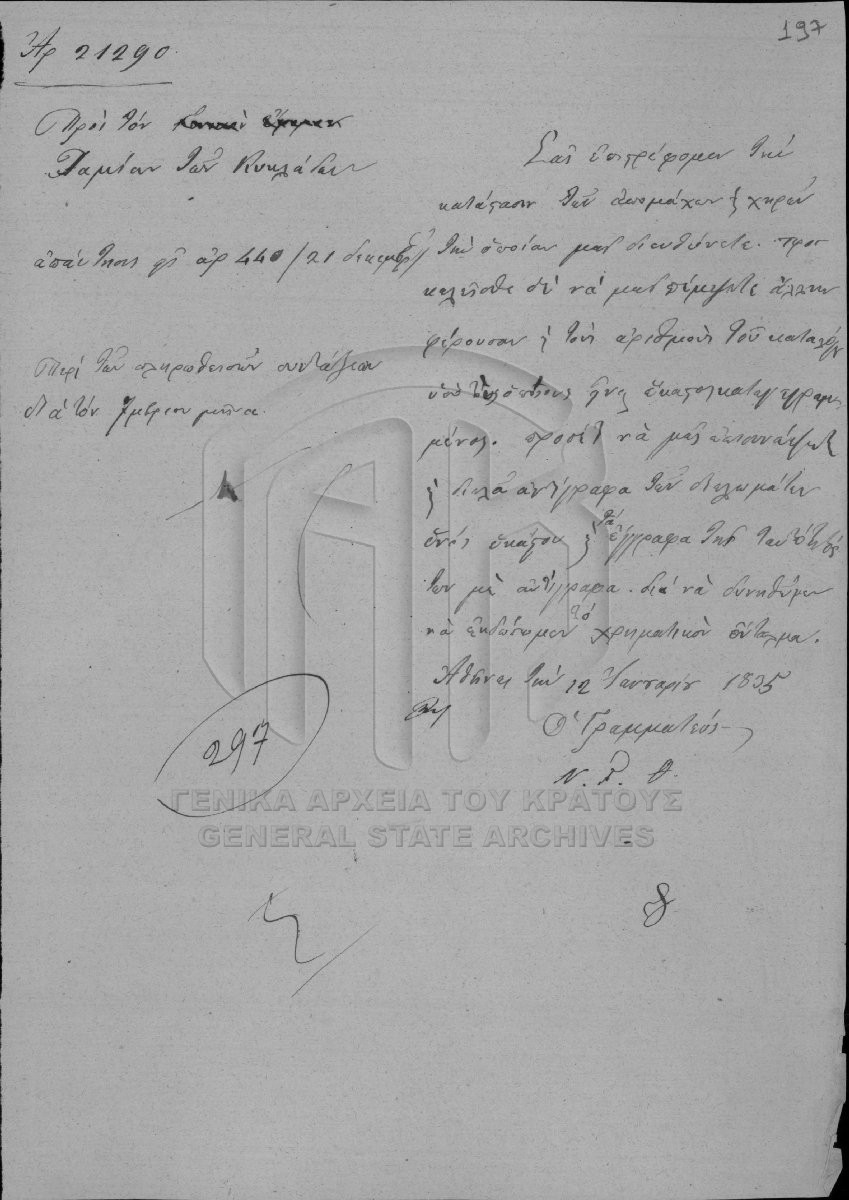 197
Ἀρ 21290.
Πρὸς τὸν
Ταμίαν τῶν Κυκλάδων
ἀπάντησις εἰς ἀρ 440/21 δεκεμβρ
Περὶ τῶν πληρωθεισῶν συντάξεων
διὰ τὸν 7μβριον μῆνα.
Σᾶς ἐπιστρέφομεν τὴν
κατάστασιν τῶν ἀπομάχων ἢ χηρῶν
τὴν ὁποίαν μᾶς διευθύνετε. προσ
καλεῖσθε δὲ νὰ μᾶς πέμψητε ἄλλην
φέρουσαν ἢ τοὺς ἀριθμοὺς τοῦ καταλόγ
ὑπὸ τοὺς ὁποίους εἶναι ἕκαστος καταγεγραμ
μένος. προσέτι νὰ μᾶς ἐπισυνάψητε
ἁπλᾶ ἀντίγραφα τῶν διπλωμάτων
ἑνὸς ἑκάστου τὰ ἔγγραφα τῆς ταυτότητός
των μὲ ἀντίγραφα. διὰ νὰ δυνηθῶμεν
νὰ ἐκδώσωμεν τὸ χρηματικὸν ἔνταλμα.
Ἀθῆναι τὴν 12 Ἰανουαρίου 1835
Ὁ Γραμματεὺς
Ν. Γ. Θ.
297
ΓΕΝΙΚΑ ΑΡΧΕΙΑ ΤΟΥ ΚΡΑΤΟΥΣ
GENERAL STATE ARCHIVES